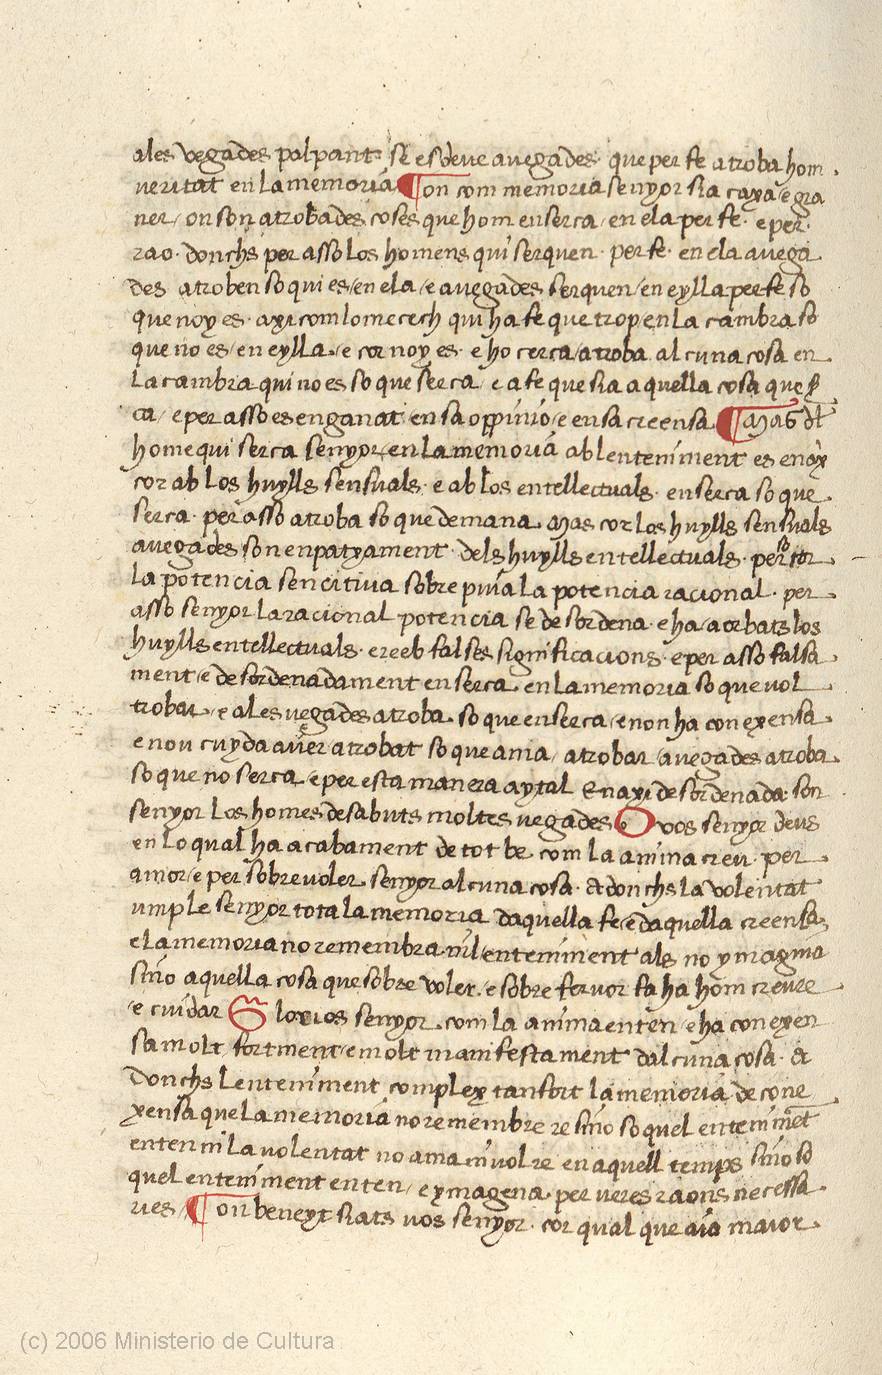 ales vegades palpant· se esdeve avegades· que per fe atroba hom
veritat en la memoria ¶ on com memoria senyor sia caxa e gra
ner / on son atrobades coses que hom en serca / en ela per fe· e per
rao· donchs per asso los homens qui serquen· per fe· en ela avega
des atroben so qui es / en ela / e avegades serquen / en eylla per fe so
que noy es· axi com lome cech qui ha fe que trop en la cambra so
que no es / en eylla· e cor noy es· e ho cerca / atroba alcuna cosa en
la cambra qui no es so que serca / e a fe que sia aquella cosa que s̶
ca / e per asso es enganat en sa oppinio / e en sa creensa ¶ Mas dl̄
home qui serca senyor en la memoria ab lenteniment es en ax̄
cor ab los huylls sensuals· e ab los entellectuals· en serca so que
serca· per asso atroba so que demana· Mas cor los huylls sensuals
avegades son enpatxament· dels huylls entellectuals· per so cor
la potencia sencitiva sobre puia la potencia racional· per
asso senyor la racional potencia se desordena· e ha / aorbats los
huylls entellectuals· e reeb falses significacions· e per asso falsa
ment / e desordenadament en serca· en la memoria so que vol
trobar· e ales vegades atroba· so que en serca / e non ha conexensa
e nou cuyda aver atrobat so que ama / atrobar / avegades atroba
so que no serca· e per esta manera aytal En axi desordenada son
senyor los homes desabuts moltes vegades O vos senyor deus
en lo qual ha acabament de tot be· com la anima creu· per
amor / e per sobre voler· senyor alcuna cosa· & donchs la volentat
umple senyor tota la memoria daquella fe / e daquella creensa
e la memoria no remembra· nil enteniment als no ymagina
sino aquella cosa que sobre voler· e sobre fervor fa ha hom creure
e cuidar G lorios senyor· com la anima enten e ha conexen
sa molt fortment / e molt manifestament dalcuna cosa· &
donchs lenteniment complex tan fort la memoria de cone
xensa que la memoria no remembre re sino so quel entenimēt
enten ni la volentat no ama ni vol re en aquell temps sino so
quel enteniment enten / e ymagena· per veres raons necessa
ries / ¶ on beneyt siats vos senyor· cor qual que aia maior·
(c) 2006 Ministerio de Cultura